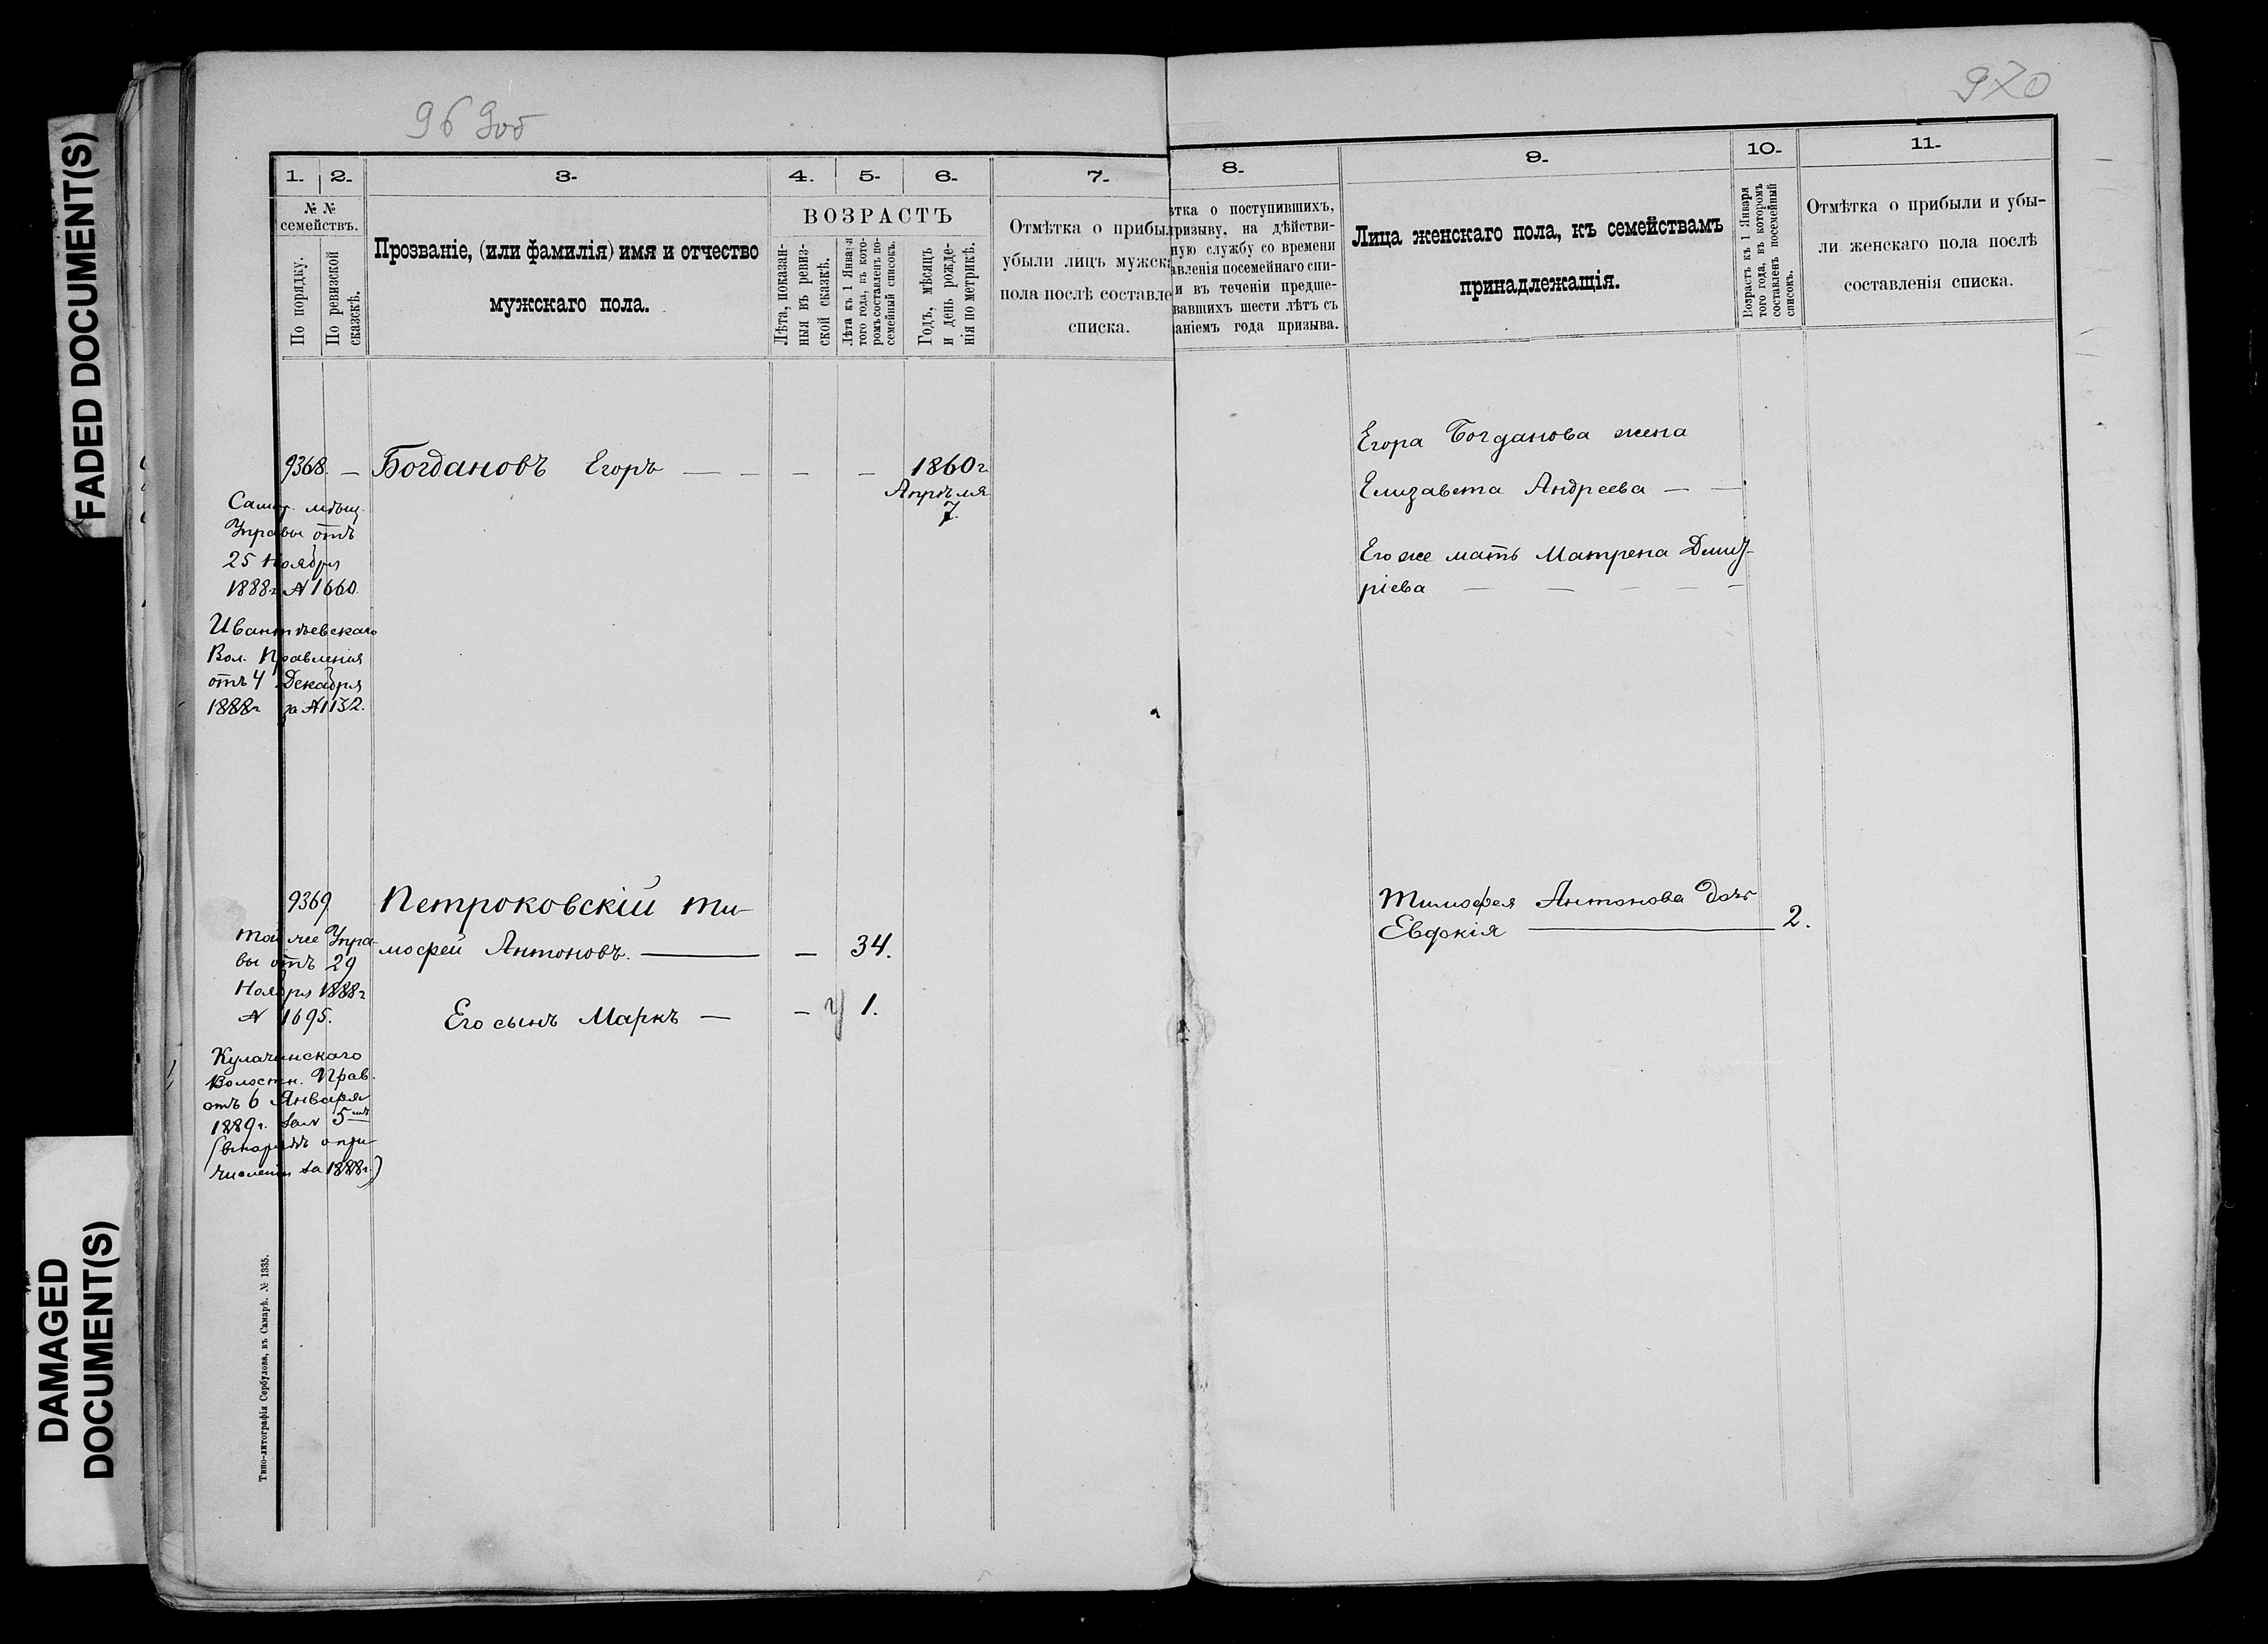 FADED DOCUMENT(S)
DAMAGED
DOCUMENT(S)
969об
970
1. 2. 3. 4. 5. 6. 7.
№ №
семействъ.
По порядку.
По ревизской
сказкѣ.
Прозваніе, (или фамилія) имя и отчество
мужскаго пола.
ВОЗРАСТЪ
Лѣта, показан-
ныя въ ревиз-
ской сказкѣ.
Лѣта къ 1 Января
того года, въ кото-
ромъ составленъ по-
семейный списокъ.
Годъ, мѣсяцъ
и день рожде-
нія по метрикѣ.
Отмѣтка о прибыл
убыли лицъ мужска
пола послѣ составле
списка.
9368. — Богдановъ Егоръ — — — — 1860 г.
Апрѣля
7.
Самар. мѣщ.
Управы отъ
25 Ноября
1888 г. № 1660.
Ивантѣевскаго
Вол. Правленія
отъ 4 Декабря
1888 г. за № 1132.
9369. Петроковскій Ти-
мофей Антоновъ. — — 34.
Его сынъ Маркъ — — 1.
той же Упра-
вы отъ 29
Ноября 1888 г.
№ 1695.
Кулачинскаго
Волостн. Прав.
отъ 6 Января
1889 г. за № 5
числении за 1888 г.)
Типо-литографія Сербулова, въ Самарѣ. № 1335.
8. 9. 10. 11.
ѣтка о поступившихъ,
призыву, на дѣйстви-
ную службу со времени
авленія посемейнаго спи-
и въ теченіи предше-
вавшихъ шести лѣтъ съ
аніемъ года призыва.
Лица женскаго пола, къ семействамъ
принадлежащія.
Возрастъ къ 1 Января
того года, въ которомъ
составленъ посемейный
списокъ.
Отмѣтка о прибыли и убы-
ли женскаго пола послѣ
составленія списка.
Егора Богданова жена
Елизавета Андреева — —
Его же мать Матрена Дмит-
ріева — — — — —
Тимофея Антонова дочь
Евфкія — 2.